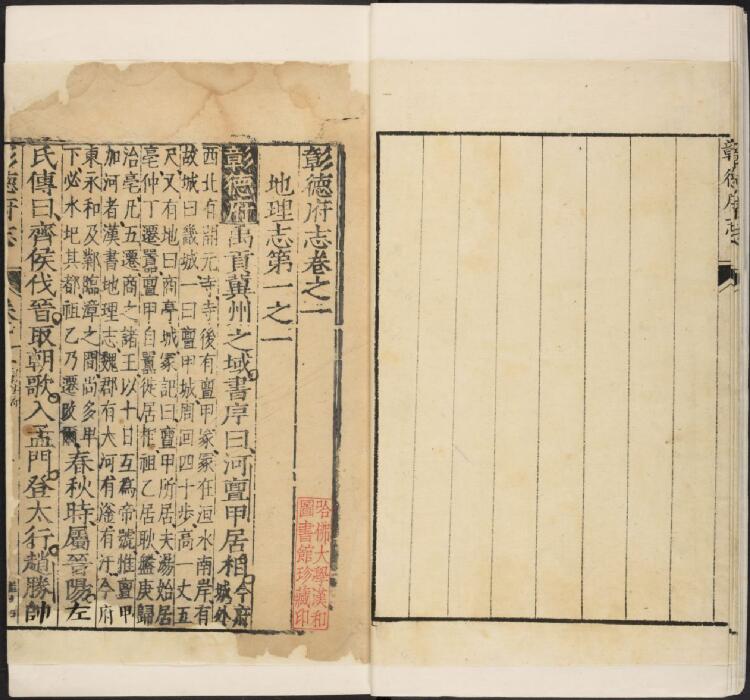 彰德府志
彰德府志卷之一
地理志第一之一
彰德府禹貢冀州之域書序曰河亶甲居相今府城外
西北有開元寺寺後有亶甲冢冢在洹水南岸有
故城曰畿城一曰亶甲城周回四十步高一丈五
尺又有地曰商亭城冢記曰亶甲所居夫湯始居
亳仲丁遷囂亶甲自囂徙居相祖乙居耿盤庚歸
治亳凡五遷商之諸王以十日互為帝號惟亶甲
加河者漢書地理志魏郡有大河有滏有汙今府
東永和及鄴臨漳之間尚多卑
下必水圮其都祖乙乃遷故爾春秋時屬晉陽左
氏傳曰齊侯伐晉取朝歌入孟門登太行趙勝帥
彰德府志
哈佛大學漢和圖書館珍藏印